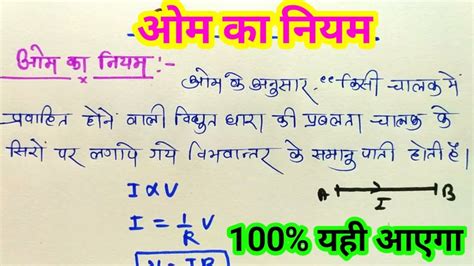 ओम का नियम
ओम का नियम :-
ओम के अनुसार, "किसी चालक में
प्रवाहित होने वाली विद्युत धारा की प्रबलता चालक के
सिरों पर लगाये गये विभवान्तर के समानुपाती होती है।
I ∝ V
A B
I
I = 1/R V
V = IR
100% यही आएगा